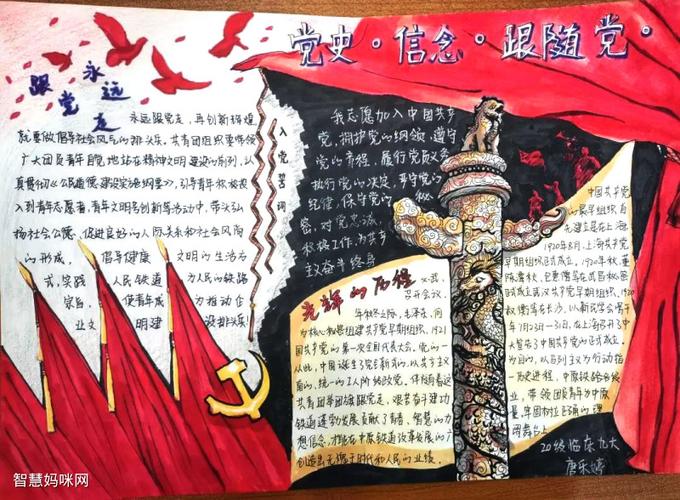 党史·信念·跟随党·
永远
跟党走
永远跟党走，再创新辉煌
就要做倡导社会风气的排头兵。共青团组织要带领
广大团员青年自觉地站在精神文明建设的前列，认
真贯彻《公民道德建设实施纲要》，引导青年积极投
入到青年志愿者，青年文明号创新等活动中，带头弘
扬社会公德，促进良好的人际关系和社会风尚
的形成，倡导健康文明的生活方
式，实践人民铁道为人民的铁路
宗旨，使青年成为推动企
业文明建设排头兵
入党誓词
我志愿加入中国共产
党，拥护党的纲领，遵守
党的章程，履行党员义务
执行党的决定，严守党的
纪律，保守党的秘
密，对党忠诚，
积极工作，为共产
主义奋斗终身
光辉的历程
召开会议。
年秋冬之际，毛泽东，何
为核心秘密组建共产党早期组织，1921
国共产党的第一次全国代表大会。党的一
从此，中国诞生了完全新式的，以共产主义
目的，统一的工人阶级政党。伴随着这
共青团举团旗跟党走，艰苦奋斗建功
铁道蓬勃发展贡献了青春，智慧的力
想信念，才能在中原铁道改革发展的广
创造出无愧于时代和人民的业绩。
中国共产党
的最早组织自
先建立是在上海
1920年8月，上海共产党
早期组织正式成立，1920年秋，董
1920
年7月23日—31日，在上海召开了中
大宣告了中国共产党的正式成立。
为目的，以马列主义为行动指
历史进程，中原铁路各级
业，带领团员青年为中原
量，牢固树立正确的理
阔舞台上
20级临床九大
唐乐婷
智慧妈咪网